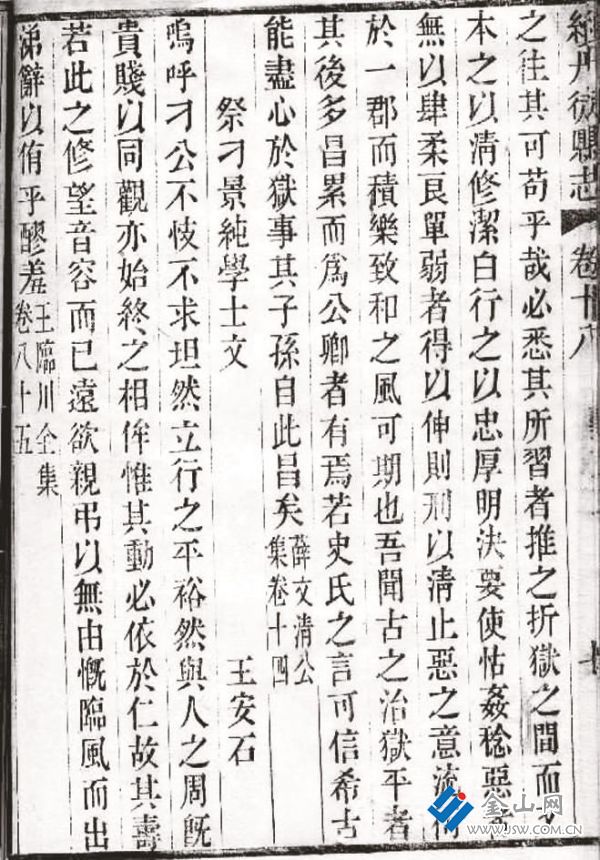 續丹徒縣志 卷十八
之往其可苟乎哉必悉其所習者推之折獄之間而
本之以清修潔白行之以忠厚明決要使怙姦稔惡者
無以肆柔良單弱者得以伸則刑以清止惡之意流衍
於一郡而積樂致和之風可期也吾聞古之治獄平者
其後多昌累而爲公卿者有焉若史氏之言可信希古
能盡心於獄事其子孫自此昌矣薛文清公集卷十四
祭刁景純學士文 王安石
嗚呼刁公不忮不求坦然立行之平裕然與人之周旣
貴賤以同觀亦始終之相侔惟其動必依於仁故其壽
若此之修望音容而已遠欲親弔以無由慨臨風而出
涕辭以侑乎醪羞王臨川全集卷八十五
金山网
WWW.JSW.COM.CN